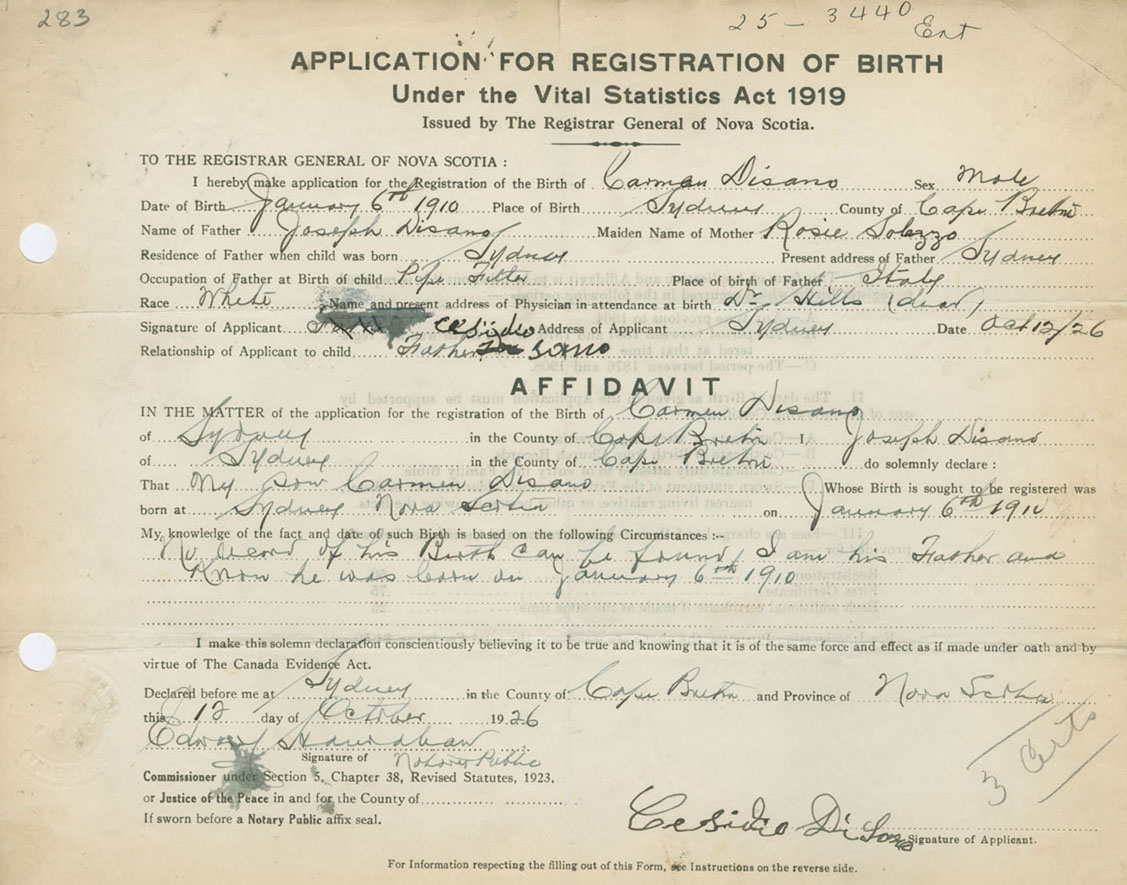 283
25-3440
Ent
APPLICATION FOR REGISTRATION OF BIRTH
Under the Vital Statistics Act 1919
Issued by The Registrar General of Nova Scotia.
TO THE REGISTRAR GENERAL OF NOVA SCOTIA :
I hereby make application for the Registration of the Birth of Carman Disano Sex Male
Date of Birth January 6th 1910 Place of Birth Sydney County of Cape Breton
Name of Father Joseph Disano Maiden Name of Mother Rosie Solazzo
Residence of Father when child was born Sydney Present address of Father Sydney
Occupation of Father at Birth of child Pipe Fitter Place of birth of Father Italy
Race White Name and present address of Physician in attendance at birth Dr. Hills (dead)
Signature of Applicant Cesidio Address of Applicant Sydney Date Oct 12/26
Relationship of Applicant to child Father Di Sano
AFFIDAVIT
IN THE MATTER of the application for the registration of the Birth of Carmen Disano
of Sydney in the County of Cape Breton I, Joseph Disano
of Sydney in the County of Cape Breton do solemnly declare :
That My son Carmen Disano Whose Birth is sought to be registered was
born at Sydney Nova Scotia on January 6th 1910
My knowledge of the fact and date of such Birth is based on the following Circumstances :--
No record of his Birth can be found, I am his Father and
Know he was born on January 6th 1910
I make this solemn declaration conscientiously believing it to be true and knowing that it is of the same force and effect as if made under oath and by
virtue of The Canada Evidence Act.
Declared before me at Sydney in the County of Cape Breton and Province of Nova Scotia
this 12 day of October 1926
Signature of Notary Public
3 Certs
Commissioner under Section 5, Chapter 38, Revised Statutes, 1923,
or Justice of the Peace in and for the County of
If sworn before a Notary Public affix seal.
Cesidio DiSano
Signature of Applicant.
For Information respecting the filling out of this Form, see Instructions on the reverse side.